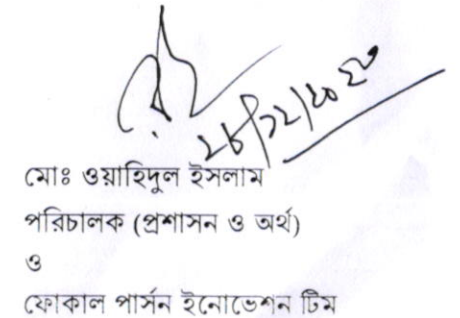 মোঃ ওয়াহিদুল ইসলাম
পরিচালক (প্রশাসন ও অর্থ)
ও
ফোকাল পার্সন ইনোভেশন টিম